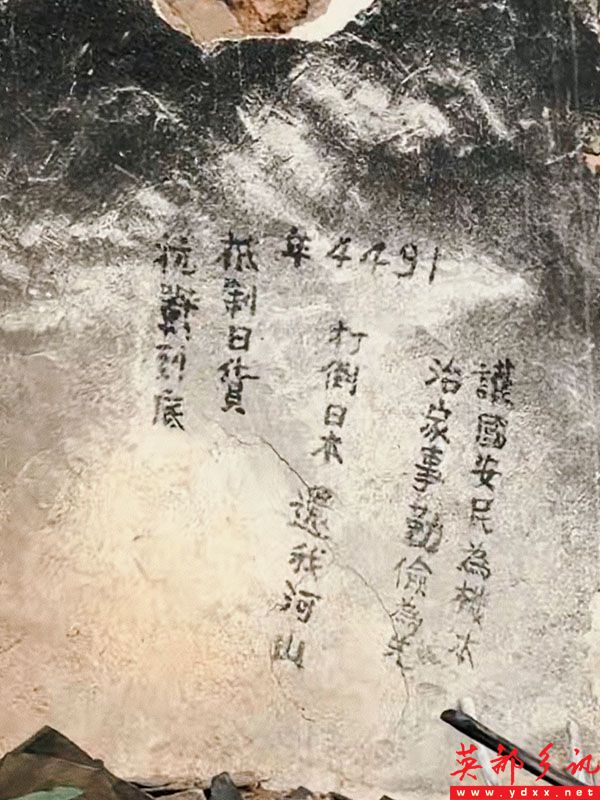 1944年
護國安民為根本
治家事勤儉為先
打倒日本
還我河山
抵制日貨
抗戰到底
英都乡讯
www.ydxx.net